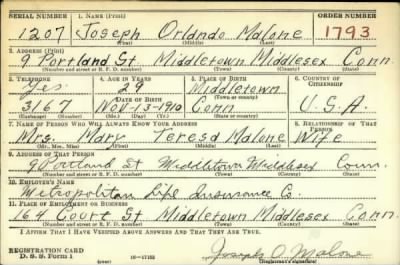 SERIAL NUMBER 1. NAME (Print) ORDER NUMBER
1207 Joseph Orlando Malone 1793
(First) (Middle) (Last)
2. ADDRESS (Print)
9 Portland St. Middletown Middlesex Conn.
(Number and street or R. F. D. number) (Town) (County) (State)
3. TELEPHONE 4. AGE IN YEARS 5. PLACE OF BIRTH 6. COUNTRY OF CITIZENSHIP
Yes. 29 Middletown
(Town or county)
DATE OF BIRTH
3167 Nov-13-1910 Conn U.S.A.
(Exchange) (Number) (Mo.) (Day) (Yr.) (State or country)
7. NAME OF PERSON WHO WILL ALWAYS KNOW YOUR ADDRESS 8. RELATIONSHIP OF THAT PERSON
Mrs. Mary Teresa Malone Wife
(Mr., Mrs., Miss) (First) (Middle) (Last)
9. ADDRESS OF THAT PERSON
9 Portland St Middletown Middlesex Conn.
(Number and street or R. F. D. number) (Town) (County) (State)
10. EMPLOYER'S NAME
Metropolitan Life Insurance Co.
11. PLACE OF EMPLOYMENT OR BUSINESS
164 Court St Middletown Middlesex Conn.
(Number and street or R. F. D. number) (Town) (County) (State)
I AFFIRM THAT I HAVE VERIFIED ABOVE ANSWERS AND THAT THEY ARE TRUE.
REGISTRATION CARD
D. S. S. Form 1 16-17105 Joseph O. Malone
(Registrant's signature)